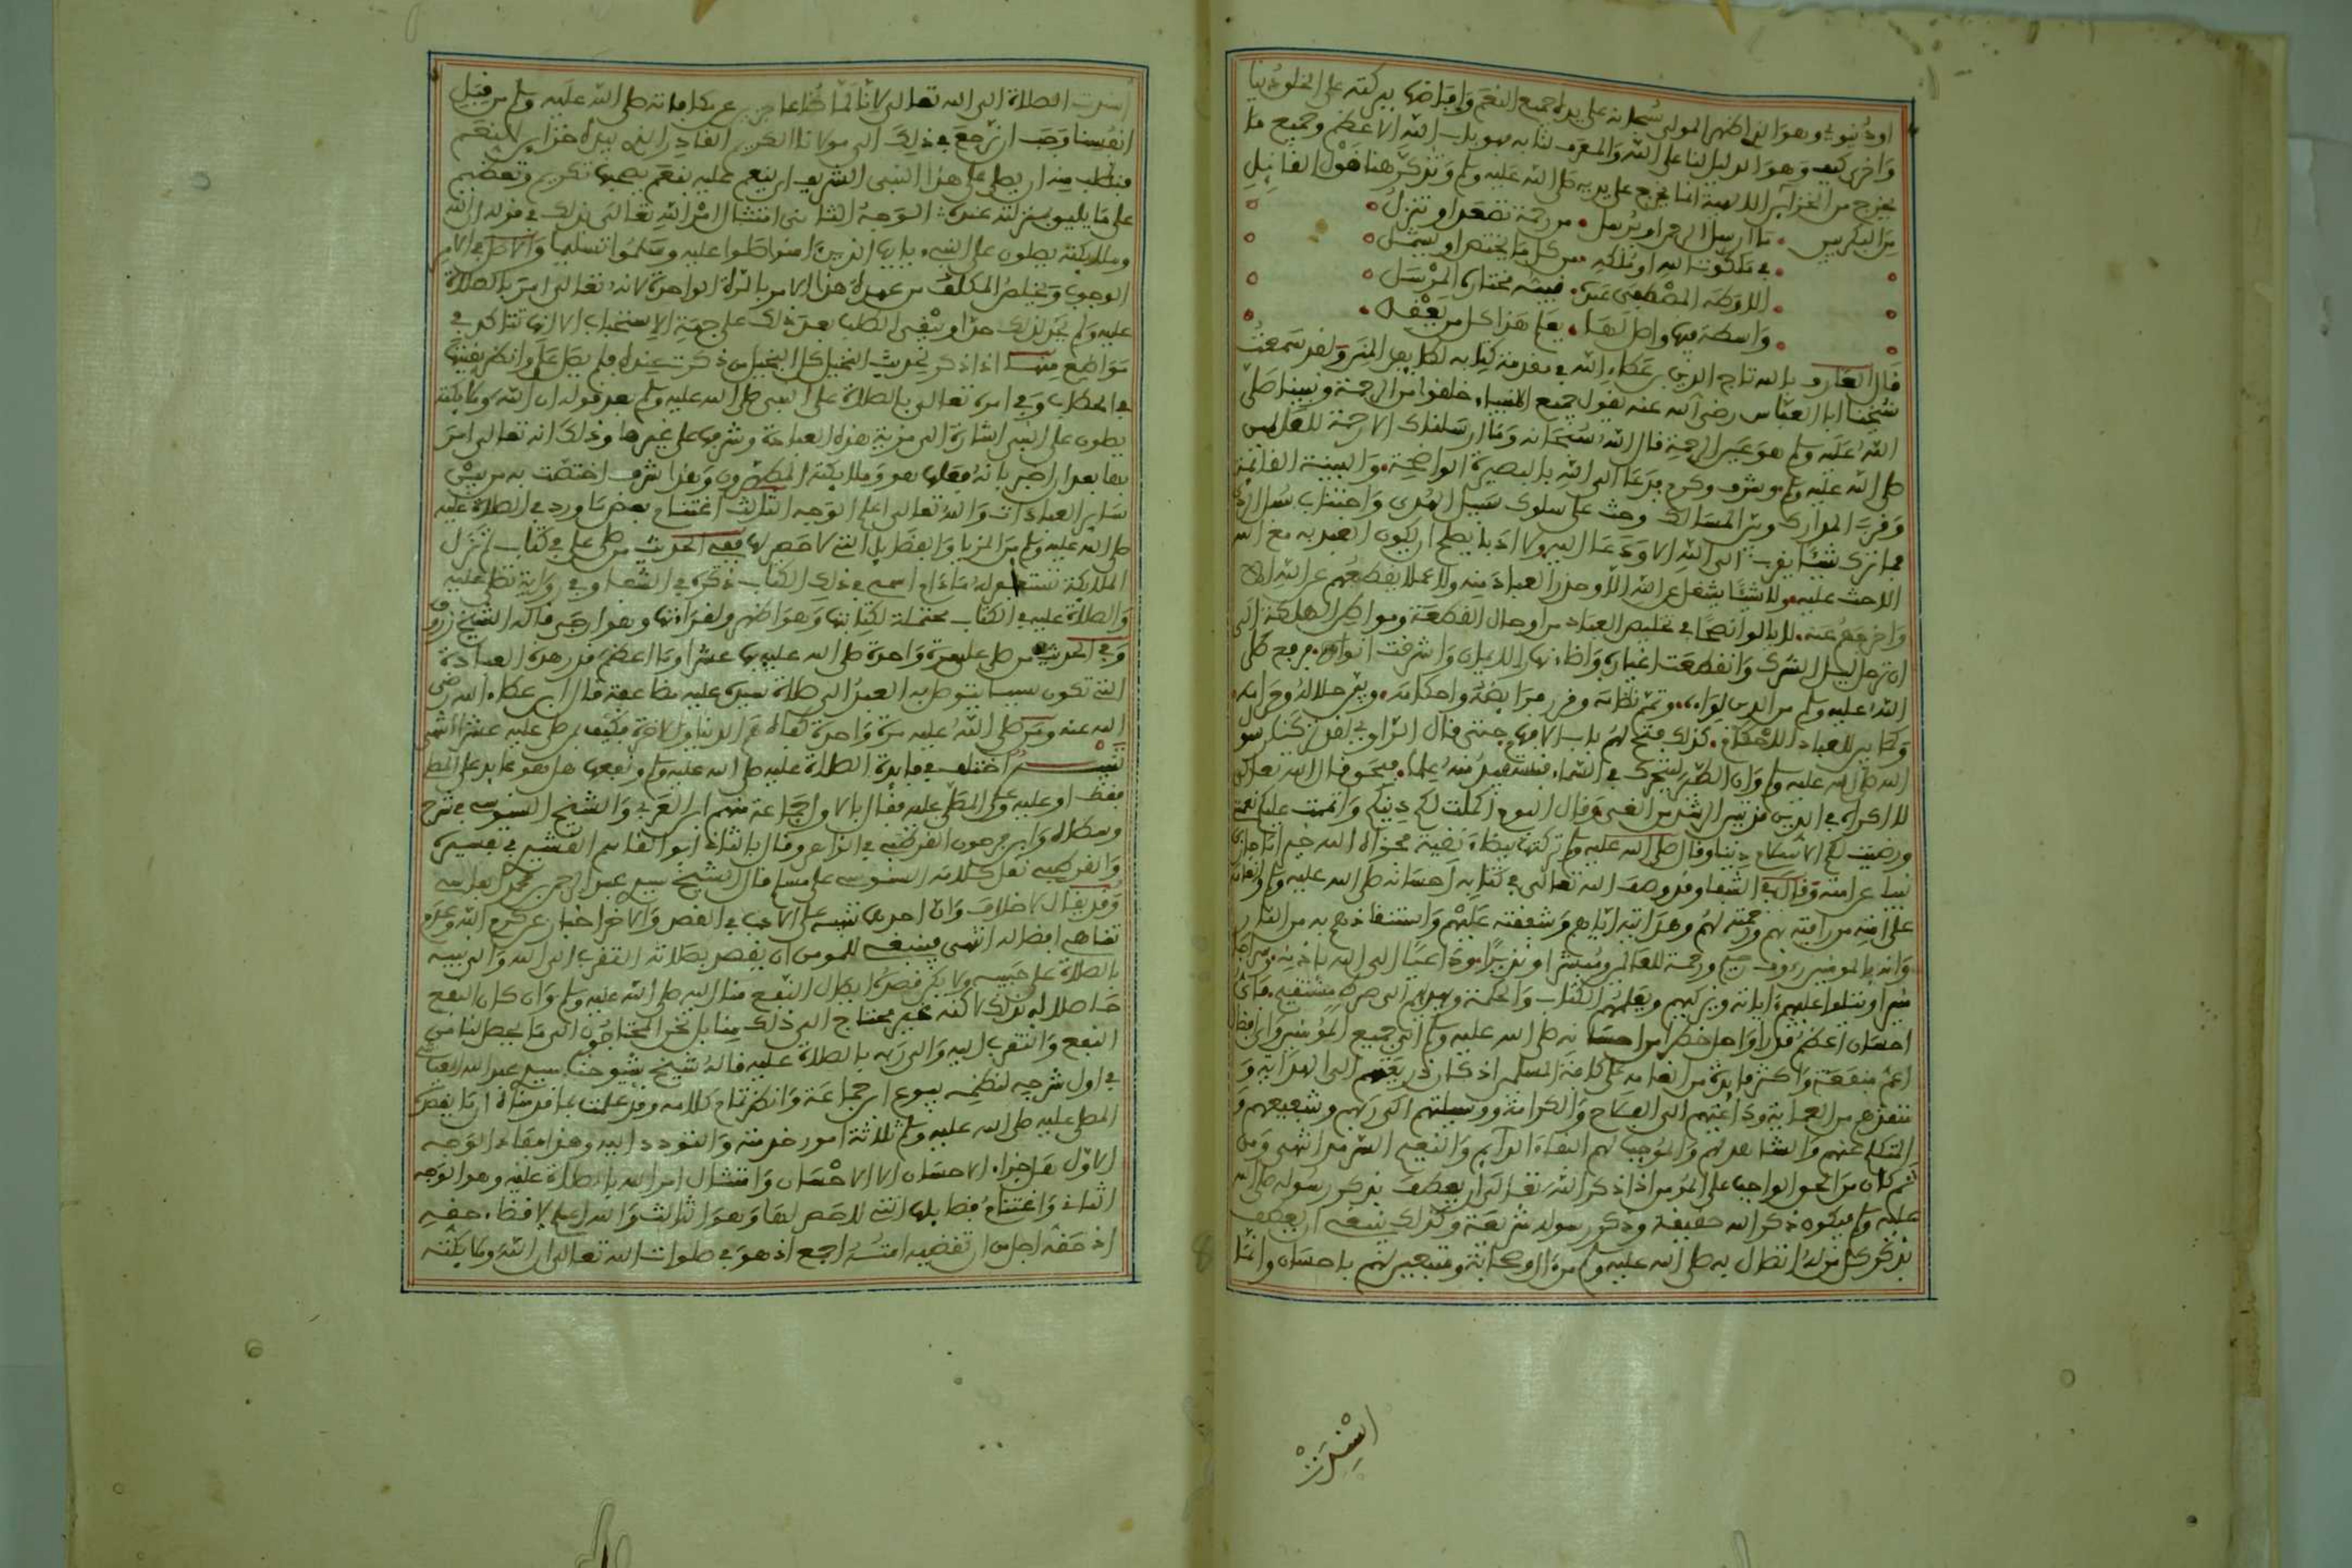 او دنيوي وهو الذي اظهر المولى سبحانه على يده جميع النعم وافاضها ببركته على الخلق دنيا
واخرى كيف وهو الدليل لنا على الله والمعرف لنا به فهو باب الله الاعظم وجميع ما
يخرج من الخزاين الالهية انما يخرج على يديه صلى الله عليه وسلم ونذكر هنا قول القائل
ما ارسل الرحمن او يرسل من رحمة تصعد او تنزل
في ملكوت الله او ملكه من كل ما يختص او يشمل
الا وطه المصطفى عبده نبيه مختاره المرسل
واسطة فيها واصل لها يعلم هذا كل من يعقل
قال العارف بالله تاج الدين بن عطاء الله في مقدمة كتابه لطايف المنن ولقد سمعت
شيخنا ابا العباس رضي الله عنه يقول جميع الانبياء خلقوا من الرحمة ونبينا صلى
الله عليه وسلم هو عين الرحمة قال الله سبحانه وما ارسلناك الا رحمة للعلمين
صلى الله عليه وسلم وشرف وكرم فدعا الى الله بالبصيرة الواضحة والبينة الفائقة
وقرب المدارك وبين المسالك وحث على سلوك سبيل الهدى واجتناب سبل الردى
فما ترك شيئا يقرب الى الله الا ودعا اليه ولا ادبا يصلح ان يكون العبد به مع الله
الا حث عليه ولا شيئا يشغل عن الله الا وحذر العباد منه ولا عملا يقطعهم عن الله الا
الله عليه وسلم من الدين لواءه وتمم نظامه وقرر فرايضه واحكامه وبين حلاله وحرامه
وكما بين للعباد الاحكام كذلك فتح لهم باب الافهام حتى قال الراوي لقد تركنا رسو
الله صلى الله عليه وسلم وان الطير ليتحرك في السماء فنستفيد منه علما فيحق قال الله تعالى
لا اكراه في الدين قد تبين الرشد من الغي وقال اليوم اكملت لكم دينكم واتممت عليكم نعمتي
ورضيت لكم الاسلام دينا وقال صلى الله عليه وسلم تركتها بيضاء نقية فجزاه الله خير ما جازى
نبيا عن امته وقال في الشفا وقد وصف الله تعالى في كتابه احسانه صلى الله عليه وسلم وانعامه
على امته من رافته بهم ورحمته لهم وهدايته اياهم وشفقته عليهم واستنقاذهم به من النار
وانه بالمومنين رءوف رحيم ورحمة للعالمين ومبشرا ونذيرا وداعيا الى الله باذنه
ويتلوا عليهم ءاياته ويزكيهم ويعلمهم الكتاب والحكمة ويهديهم الى صراط مستقيم فاي
احسان اعظم قدرا واجل خطرا من احسانه صلى الله عليه وسلم الى جميع المؤمنين واي افضال
اعم منفعة واكثر فايدة من انعامه على كافة المسلمين اذ كان ذريعتهم الى الهداية و
منقذهم من العماية وداعيهم الى الفلاح والكرامة ووسيلتهم الى ربهم وشفيعهم و
المتكلم عنهم والشاهد لهم والموجب لهم البقاء الدايم والنعيم السرمد انتهى ومن
ثم كان من الحق الواجب على المؤمن اذا ذكر الله تعالى ان يعطف بذكر رسوله صلى الله
عليه وسلم فيكون ذكر الله حقيقة وذكر رسوله شريعة وكذلك ينبغي ان يعطف
بذكر كل من له اتصال به صلى الله عليه وسلم من ءاله وصحابته ومتبعيهم لهم باحسان وانما
اسندت
اسندت الصلاة الى الله تعالى لانا لما كنا عاجزين عن مكافاته صلى الله عليه وسلم من قبل
انفسنا وجب ان نرجع في ذلك الى مولانا الكريم القادر الذي بيده خزاين النعم
فنطلب منه ان يصلي على هذا النبي الشريف اي ينعم عليه بنعم يصحبها تكريم وتعظيم
على ما يليق بمنزلته عنده الوجه الثاني امتثال امر الله تعالى بذلك في قوله ان الله
وملايكته يصلون على النبيء يايها الذين ءامنوا صلوا عليه وسلموا تسليما والاصل في الامر
الوجوب ويخلص المكلف من عهدة هذا الامر بالمرة الواحدة لانه تعالى امر بالصلاة
عليه ولم يحد لذلك حدا وبقي الطلب بعد ذلك على جهة الاستحباب الا انها تتاكد في
مواضع منها اذا ذكر لحديث البخيل كل البخيل من ذكرت عنده فلم يصل علي وانظر بقيتها
في الحطاب وفي امره تعالى بالصلاة على النبي صلى الله عليه وسلم بعد قوله ان الله وملايكته
يصلون على النبي اشارة الى مزية هذه العبادة وشرفها على غيرها وذلك انه تعالى امر
بها بعد ان اخبر بانه فعلها هو وملايكته المطهرون وهذا شرف اختصت به من بين
ساير العبادات والله تعالى اعلم الوجه الثالث اغتنام بعض ما ورد في الصلاة عليه
صلى الله عليه وسلم من المزايا والفضايل التي لا حصر لها ففي الحديث من صلى علي في كتاب لم تزل
الملايكة تستغفر له ما دام اسمي في ذلك الكتاب ذكره في الشفا وفي رواية تصلي عليه
والصلاة عليه في الكتاب محتملة لكتابتها وهو اظهر ولقراءتها وهو ارجى قاله الشيخ زروق
وفي الحديث من صلى عليه مرة واحدة صلى الله عليه بها عشرا وما اعظم قدر هذه العبادة
التي تكون سببا يتوصل به العبد الى صلاة سيده عليه مضاعفة قال ابن عطاء الله رضي
الله عنه ومن صلى الله عليه مرة واحدة كفاه هم الدنيا والاخرة فكيف بمن صلى عليه عشرا انتهى
تنبيه اختلف في فايدة الصلاة عليه صلى الله عليه وسلم ونفعها هل هو عايد على المصلي
فقط او عليه وعلى المصلى عليه فقال بالاول جماعة منهم ابن العربي والشيخ السنوسي في شرح
وسطاه وابن فرحون القرطبي في الزاهر وقال بالثاني ابو القاسم القشيري في تفسيره
والقرطبي نقل كلامه السنوسي على مسلم قال الشيخ سيدي عبد الرحمن بن محمد الفاسي
وقد يقال لا خلاف وان احدهما تنبيه على الادب في القصد والاخر اخبار عن كرم الله وعدم
تناهي افضاله انتهى فينبغي للمومن ان يقصد بصلاته التقرب الى الله والى نبيه
بالصلاة على حبيبه ولا يكن قصده ايصال النفع منا اليه صلى الله عليه وسلم وان كان النفع
حاصلا له بذلك لاكنه غير محتاج الى ذلك منا بل نحن المحتاجون الى ما يحصل لنا من
النفع والتقرب اليه والى ربه بالصلاة عليه قاله شيخ شيوخنا سيدي عبد الله العياشي
في اول شرحه لنظمه بيوع ابن جماعة وانظر تمام كلامه وقد علمت مما قدمناه ان ما يقصده
المصلي عليه صلى الله عليه وسلم ثلاثة امور خدمته والتودد اليه وهذا مفاد الوجه
الاول هل جزاء الاحسان الا الاحسان وامتثال امر الله بالصلاة عليه وهو الوجه
الثاني واغتنام فضايلها التي لا حصر لها وهو الثالث والله اعلم
اذ حقه اجل من ان تقضيه امته اجمع اذ هو في صلوات الله تعالى ان الله وملايكته